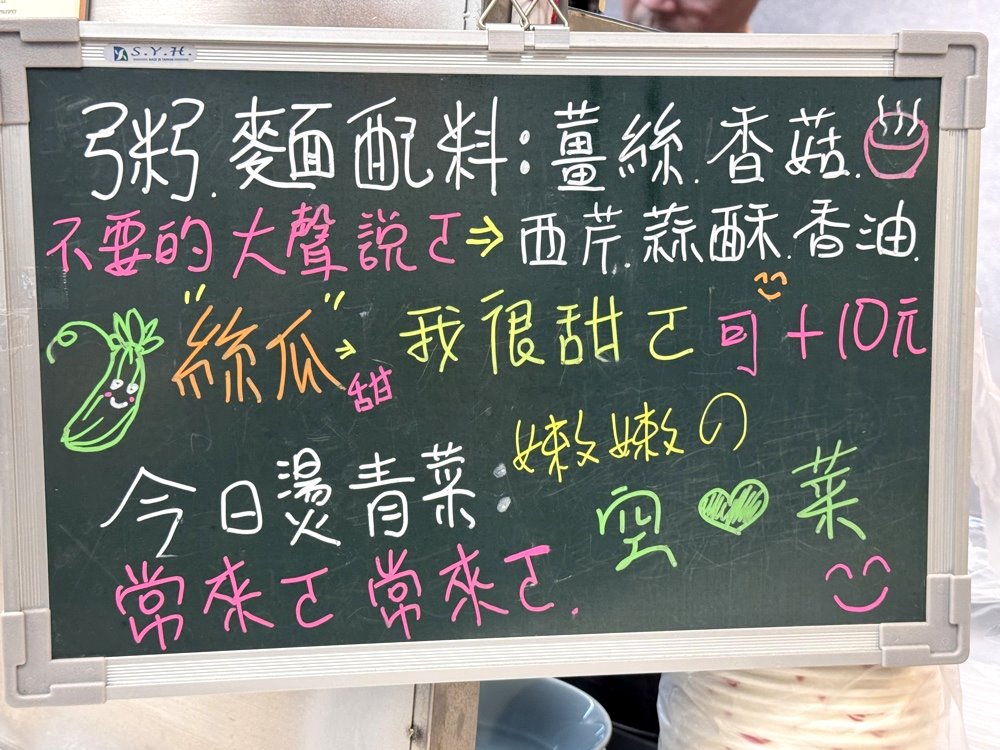 S.Y.H.
MADE IN TAIWAN
粥.麵配料:薑絲.香菇.
不要的大聲說ㄛ⇒西芹.蒜酥.香油.
"絲瓜"→我很甜ㄛ可+10元
甜
嫩嫩の
今日燙青菜:空♥菜
常來ㄛ常來ㄛ.